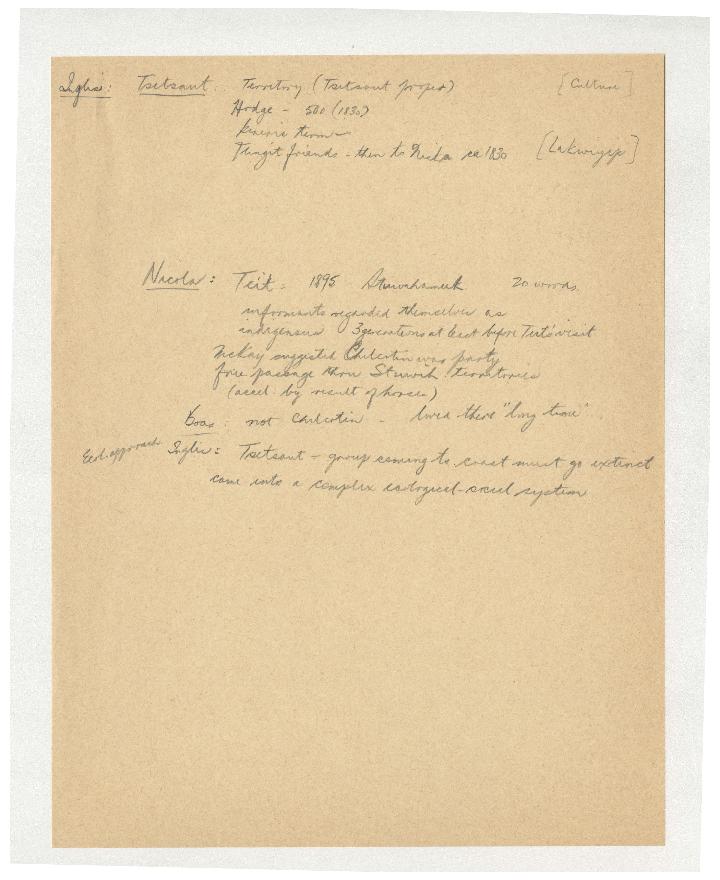 Inglis: Tsetsaut. Territory (Tsetsaut proper) [Culture]
Hodge - 500 (1830)
term
Tlingit friends - then to Niska ca 1830 [Lakwiyip]
Nicola: Teit: 1895 Stuwihamuk 20 words.
informants regarded themselves as
indigenous 3 generations at least before Teit's visit
McKay suggested Chilcotin war party
free passage thru Stuwih. territories
(accel. by result of horses)
Boas: not Chilcotin - lived there "long time".
Ecol. approach Inglis: Tsetsaut - group coming to coast must go extinct
came into a complex ecological-social system